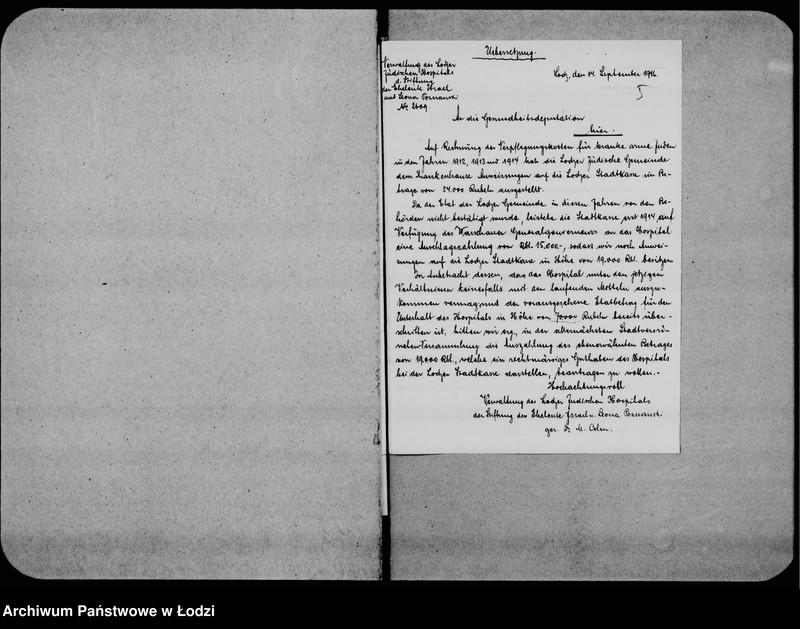 Uebersetzung.
Verwaltung des Lodzer
Jüdischen Hospitals
d. Stiftung
der Eheleute Israel
und Leona Poznanski
Nr. 2609.
Lodz, den 14. September 1916.
An die Gesundheitsdeputation
hier.
Auf Rechnung der Verpflegungskosten für kranke arme Juden
in den Jahren 1912, 1913 und 1914 hat die Lodzer Jüdische Gemeinde
dem Krankenhause Anweisungen auf die Lodzer Stadtkasse im Be-
trage von 34.000 Rubeln ausgestellt.
Da der Etat der Lodzer Gemeinde in diesen Jahren von den Be-
hörden nicht bestätigt wurde, leistete die Stadtkasse erst 1914 auf
Verfügung des Warschauer Generalgouverneurs an das Hospital
eine Anschlagszahlung von Rbl. 15.000.-, sodass wir noch Anwei-
sungen auf die Lodzer Stadtkasse in Höhe von 19.000 Rbl. besitzen
In Anbetracht dessen, das das Hospital unter den jetzigen
Verhältnissen keinesfalls mit den laufenden Mitteln auszu-
kommen vermag und der vorausgesehene Etatbetrag für den
Unterhalt des Hospitals in Höhe von 70000 Rubeln bereits über-
schritten ist, bitten wir erg., in der allernächsten Stadtverord-
neten-Versammlung die Auszahlung des obenerwähnten Betrages
von 19.000 Rbl., welche ein rechtmässiges Guthaben des Hospitals
bei der Lodzer Stadtkasse darstellen, beantragen zu wollen.-
Hochachtungsvoll
Verwaltung des Lodzer Jüdischen Hospitals
der Stiftung der Eheleute Israel u. Leona Poznanski
gez. Dr. M. Cohn.
Archiwum Państwowe w Łodzi